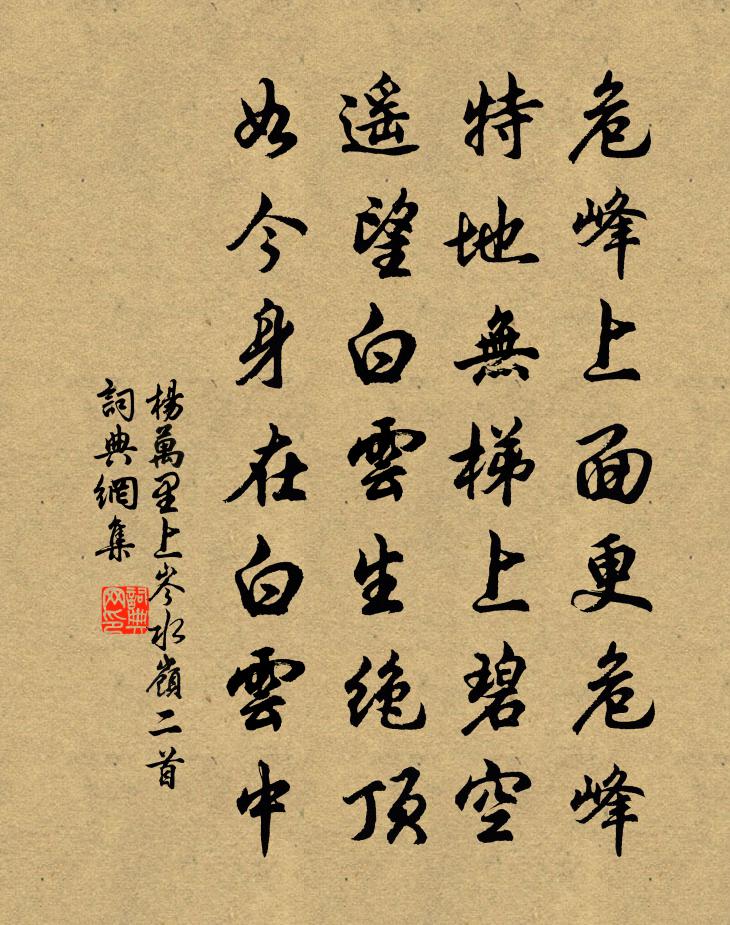 危峰上面更危峰
特地無梯上碧空
遥望白雲生绝頂
如今身在白雲中
楊萬里上岑水嶺二首
詞典網集
詞典
网印